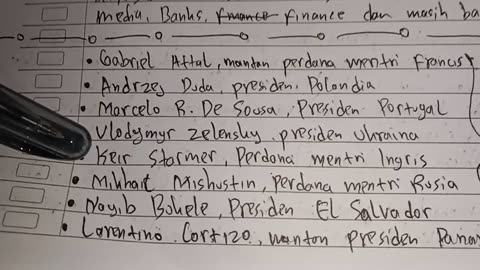 media, Banks, finance dan masih ba
• Gabriel Attal, mantan perdana mentri Francus
• Andrzej Duda, presiden Polandia
• Marcelo R. De Sousa, Presiden Portugal
Vlodymyr zelensky presiden Ukraina
Keir Starmer, Perdana mentri Ingris
• Mikhait Mishustin, perdana mentri Rusia
• Nayib Bukele, Presiden EL Salvador
• Lorentino Cortizo, manton presiden Panam